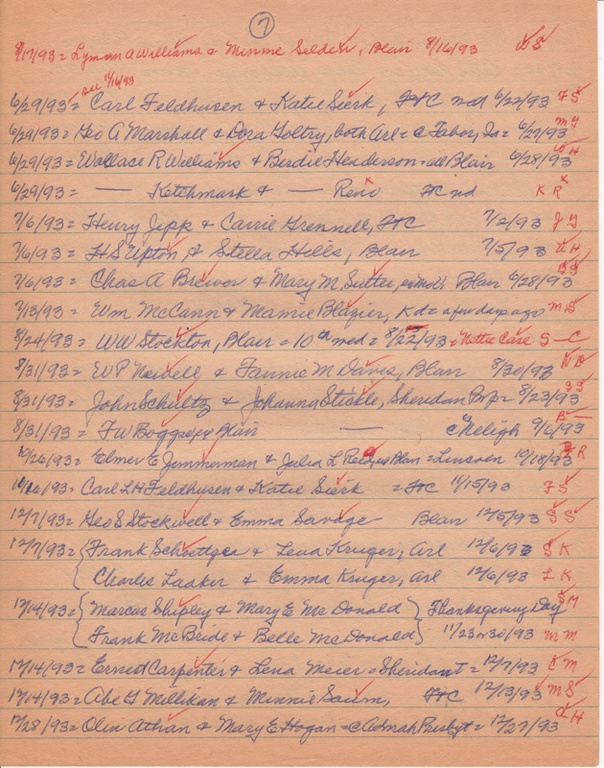 7
8/17/93 = Lyman A Williams & Minnie Selden, Blair 8/16/93 W S
see 11/16/93
6/29/93 = Carl Feldhusen & Katie Sierk, FtC nd 6/22/93 F S
6/29/93 = Geo A Marshall & Dora Goltry, both Arl = @ Tabor, Ia = 6/27/93 M G
6/29/93 = Wallace R Williams & Birdie Henderson = all Blair 6/28/93 W H
6/29/93 = — Ketchmark & — Reno FtC nd K R
7/6/93 = Henry Jipp & Carrie Grennell, FtC 7/2/93 J G
7/6/93 = H S Upton & Stella Hills, Blair 7/5/93 U H
7/6/93 = Chas A Brewer & Mary M Sutter, Blair 6/28/93 B S
7/13/93 = Wm McCann & Mamie Blazier, K d = a few days ago M B
8/24/93 = WW Stockton, Blair = 10th wed = 8/22/93 = Nettie Case S - C
8/31/93 = W P Newell & Fannie M Davis, Blair 8/30/93 N D
8/31/93 = John Schultz & Johanna Stickle, Sheridan Twp = 8/23/93 S S
8/31/93 = F W Boggs, Blair — @ Neligh 9/6/93 B —
10/26/93 = Elmer E Zimmerman & Julia L = Lincoln 10/18/93 Z R
Carl L H Feldhusen & Katie Sierk = FtC 11/15/93 F S
12/7/93 = Geo S Stockwell & Emma Savage Blair 12/5/93 S S
12/7/93 = { Frank Schoettger & Lena Kruger, Arl 12/6/93 S K
Charles Laaker & Emma Kruger, Arl 12/6/93 L K
12/14/93 = { Marcus Shipley & Mary E McDonald } Thanksgiving Day S M
Frank McBride & Belle McDonald } 11/23 or 30/93 M M
12/14/93 = Ernest Carpenter & Lena Meier = Sheridan T = 12/7/93 C M
12/14/93 = Abe G Millikan & Minnie Saum, FtC 12/13/93 M S
12/28/93 = Olin Athan & Mary E Hogan = @ Admah Presbyt = 12/27/93 A H